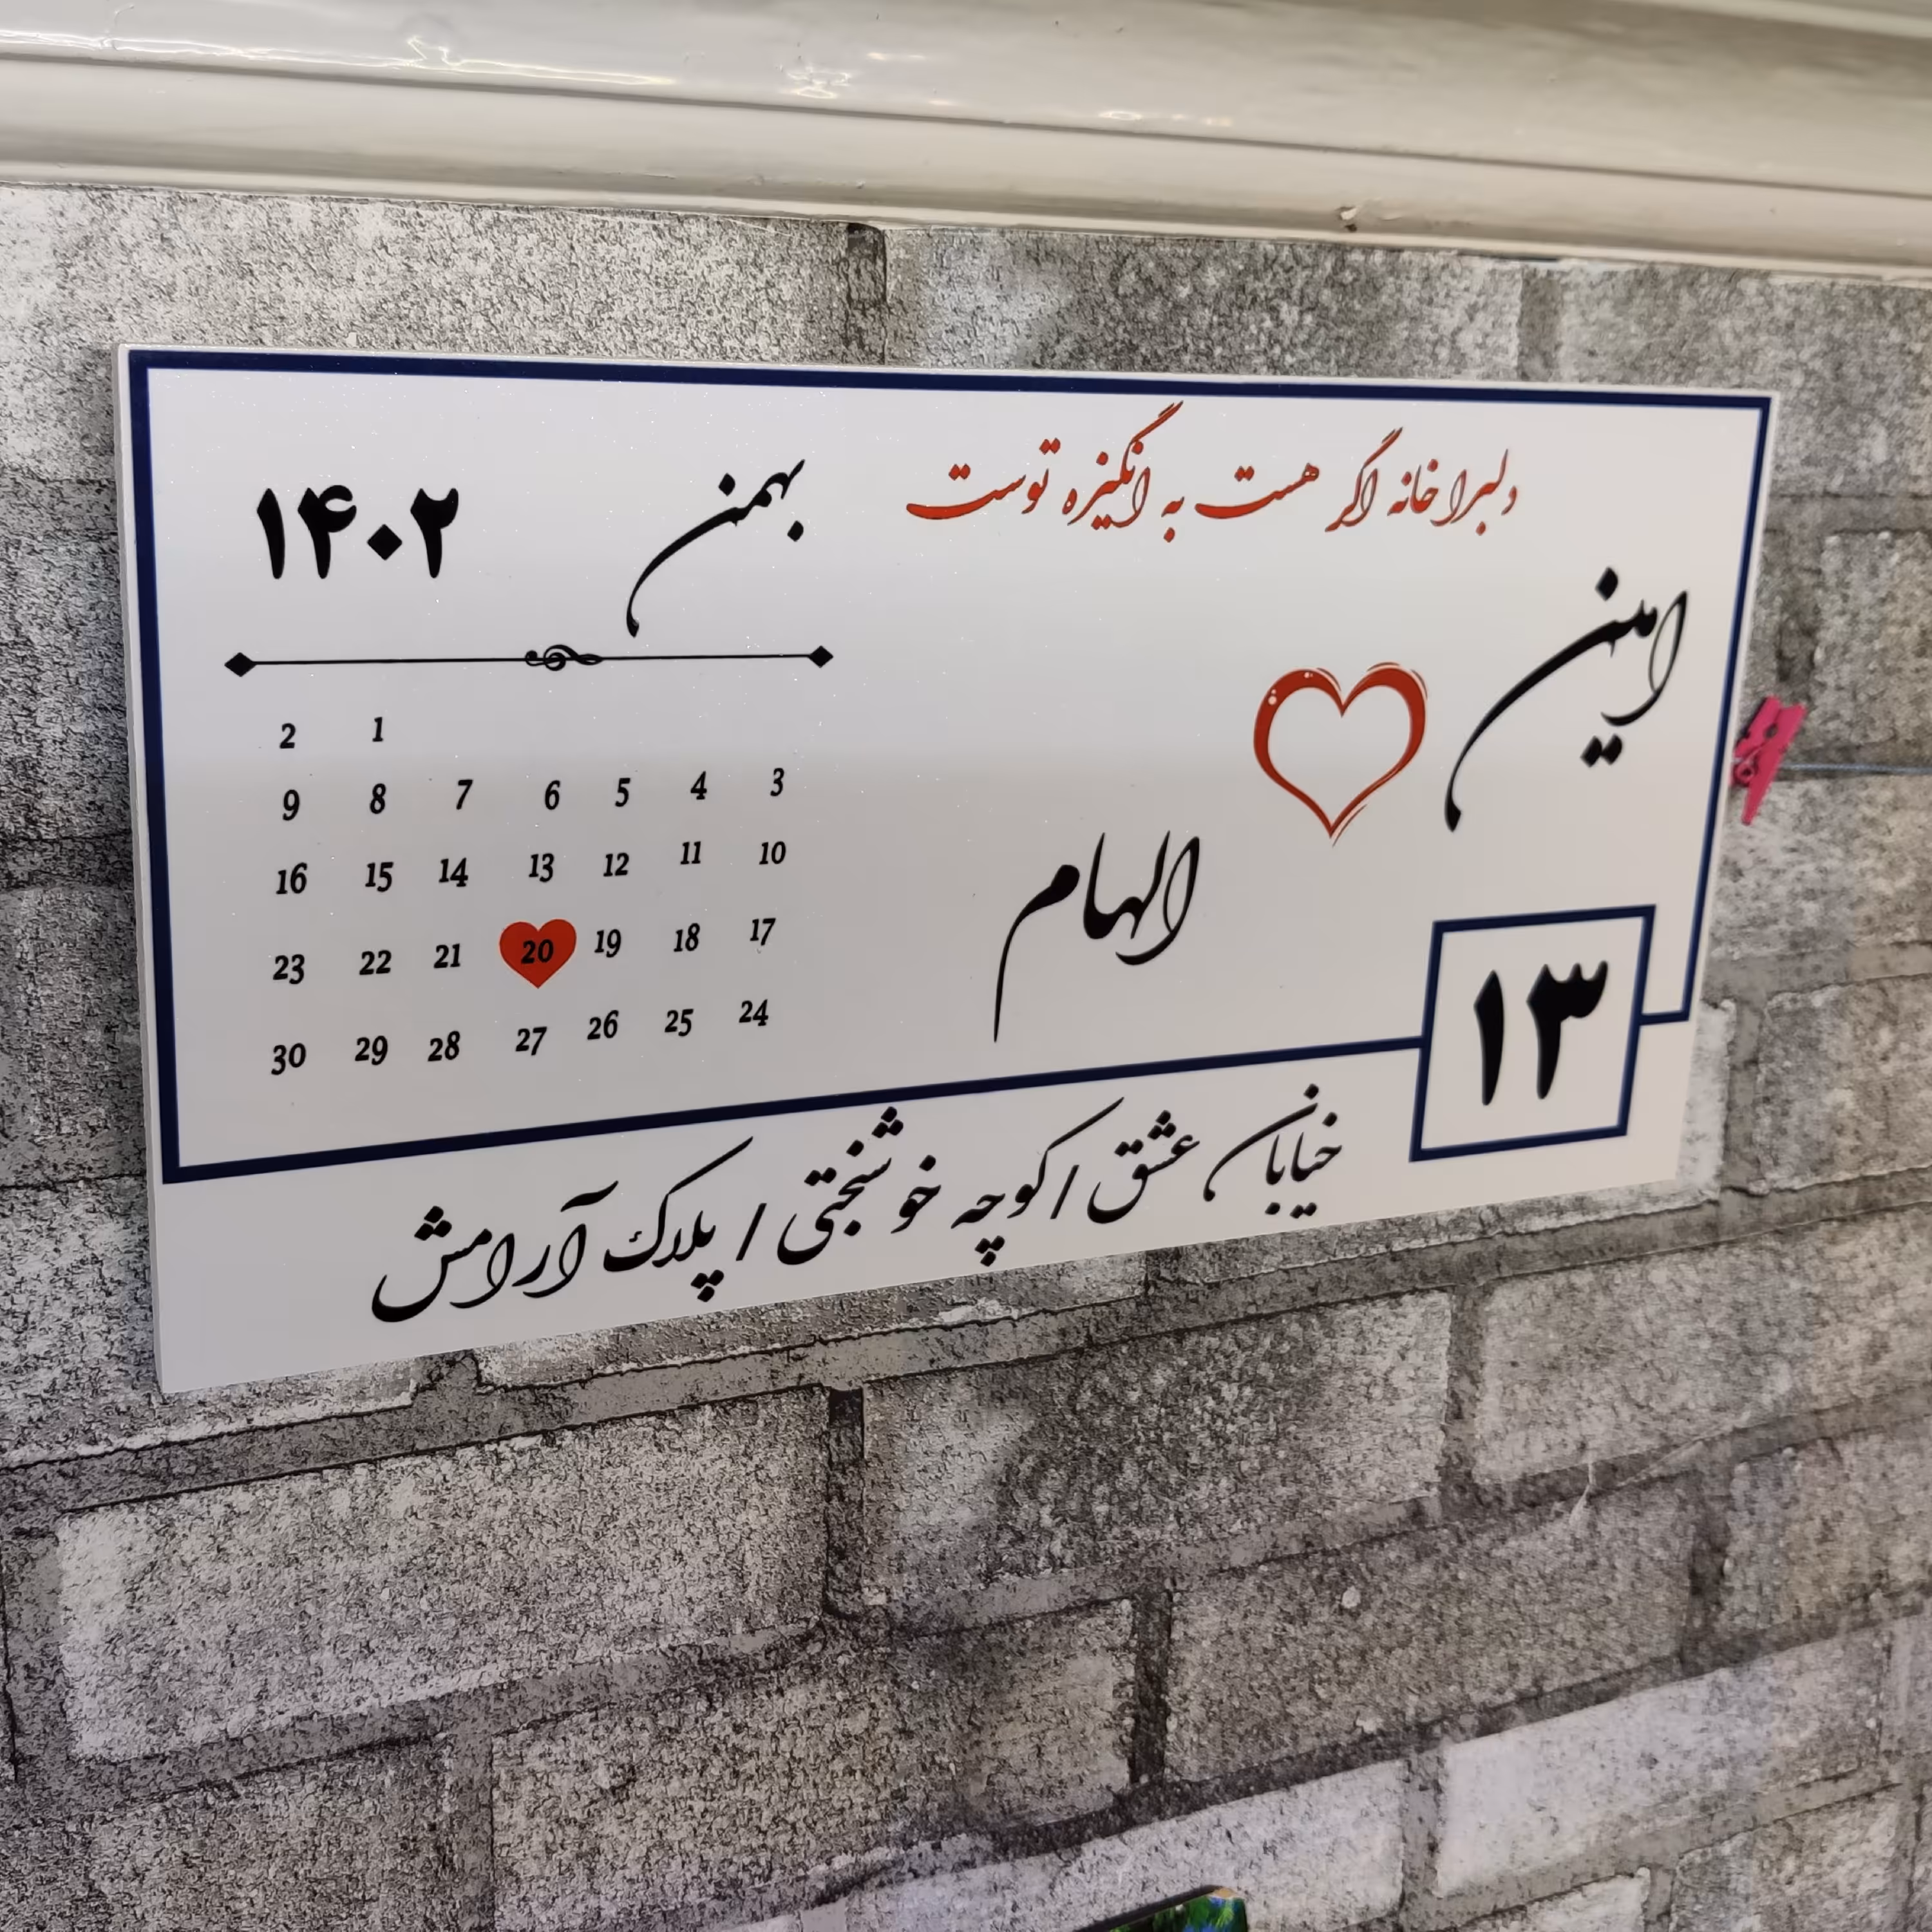 دلبرا خانه اگر هست به انگیزه توست
امین
الهام
۱۳
بهمن ۱۴۰۲
1 2
3 4 5 6 7 8 9
10 11 12 13 14 15 16
17 18 19 20 21 22 23
24 25 26 27 28 29 30
خیابان عشق / کوچه خوشبختی / پلاک آرامش